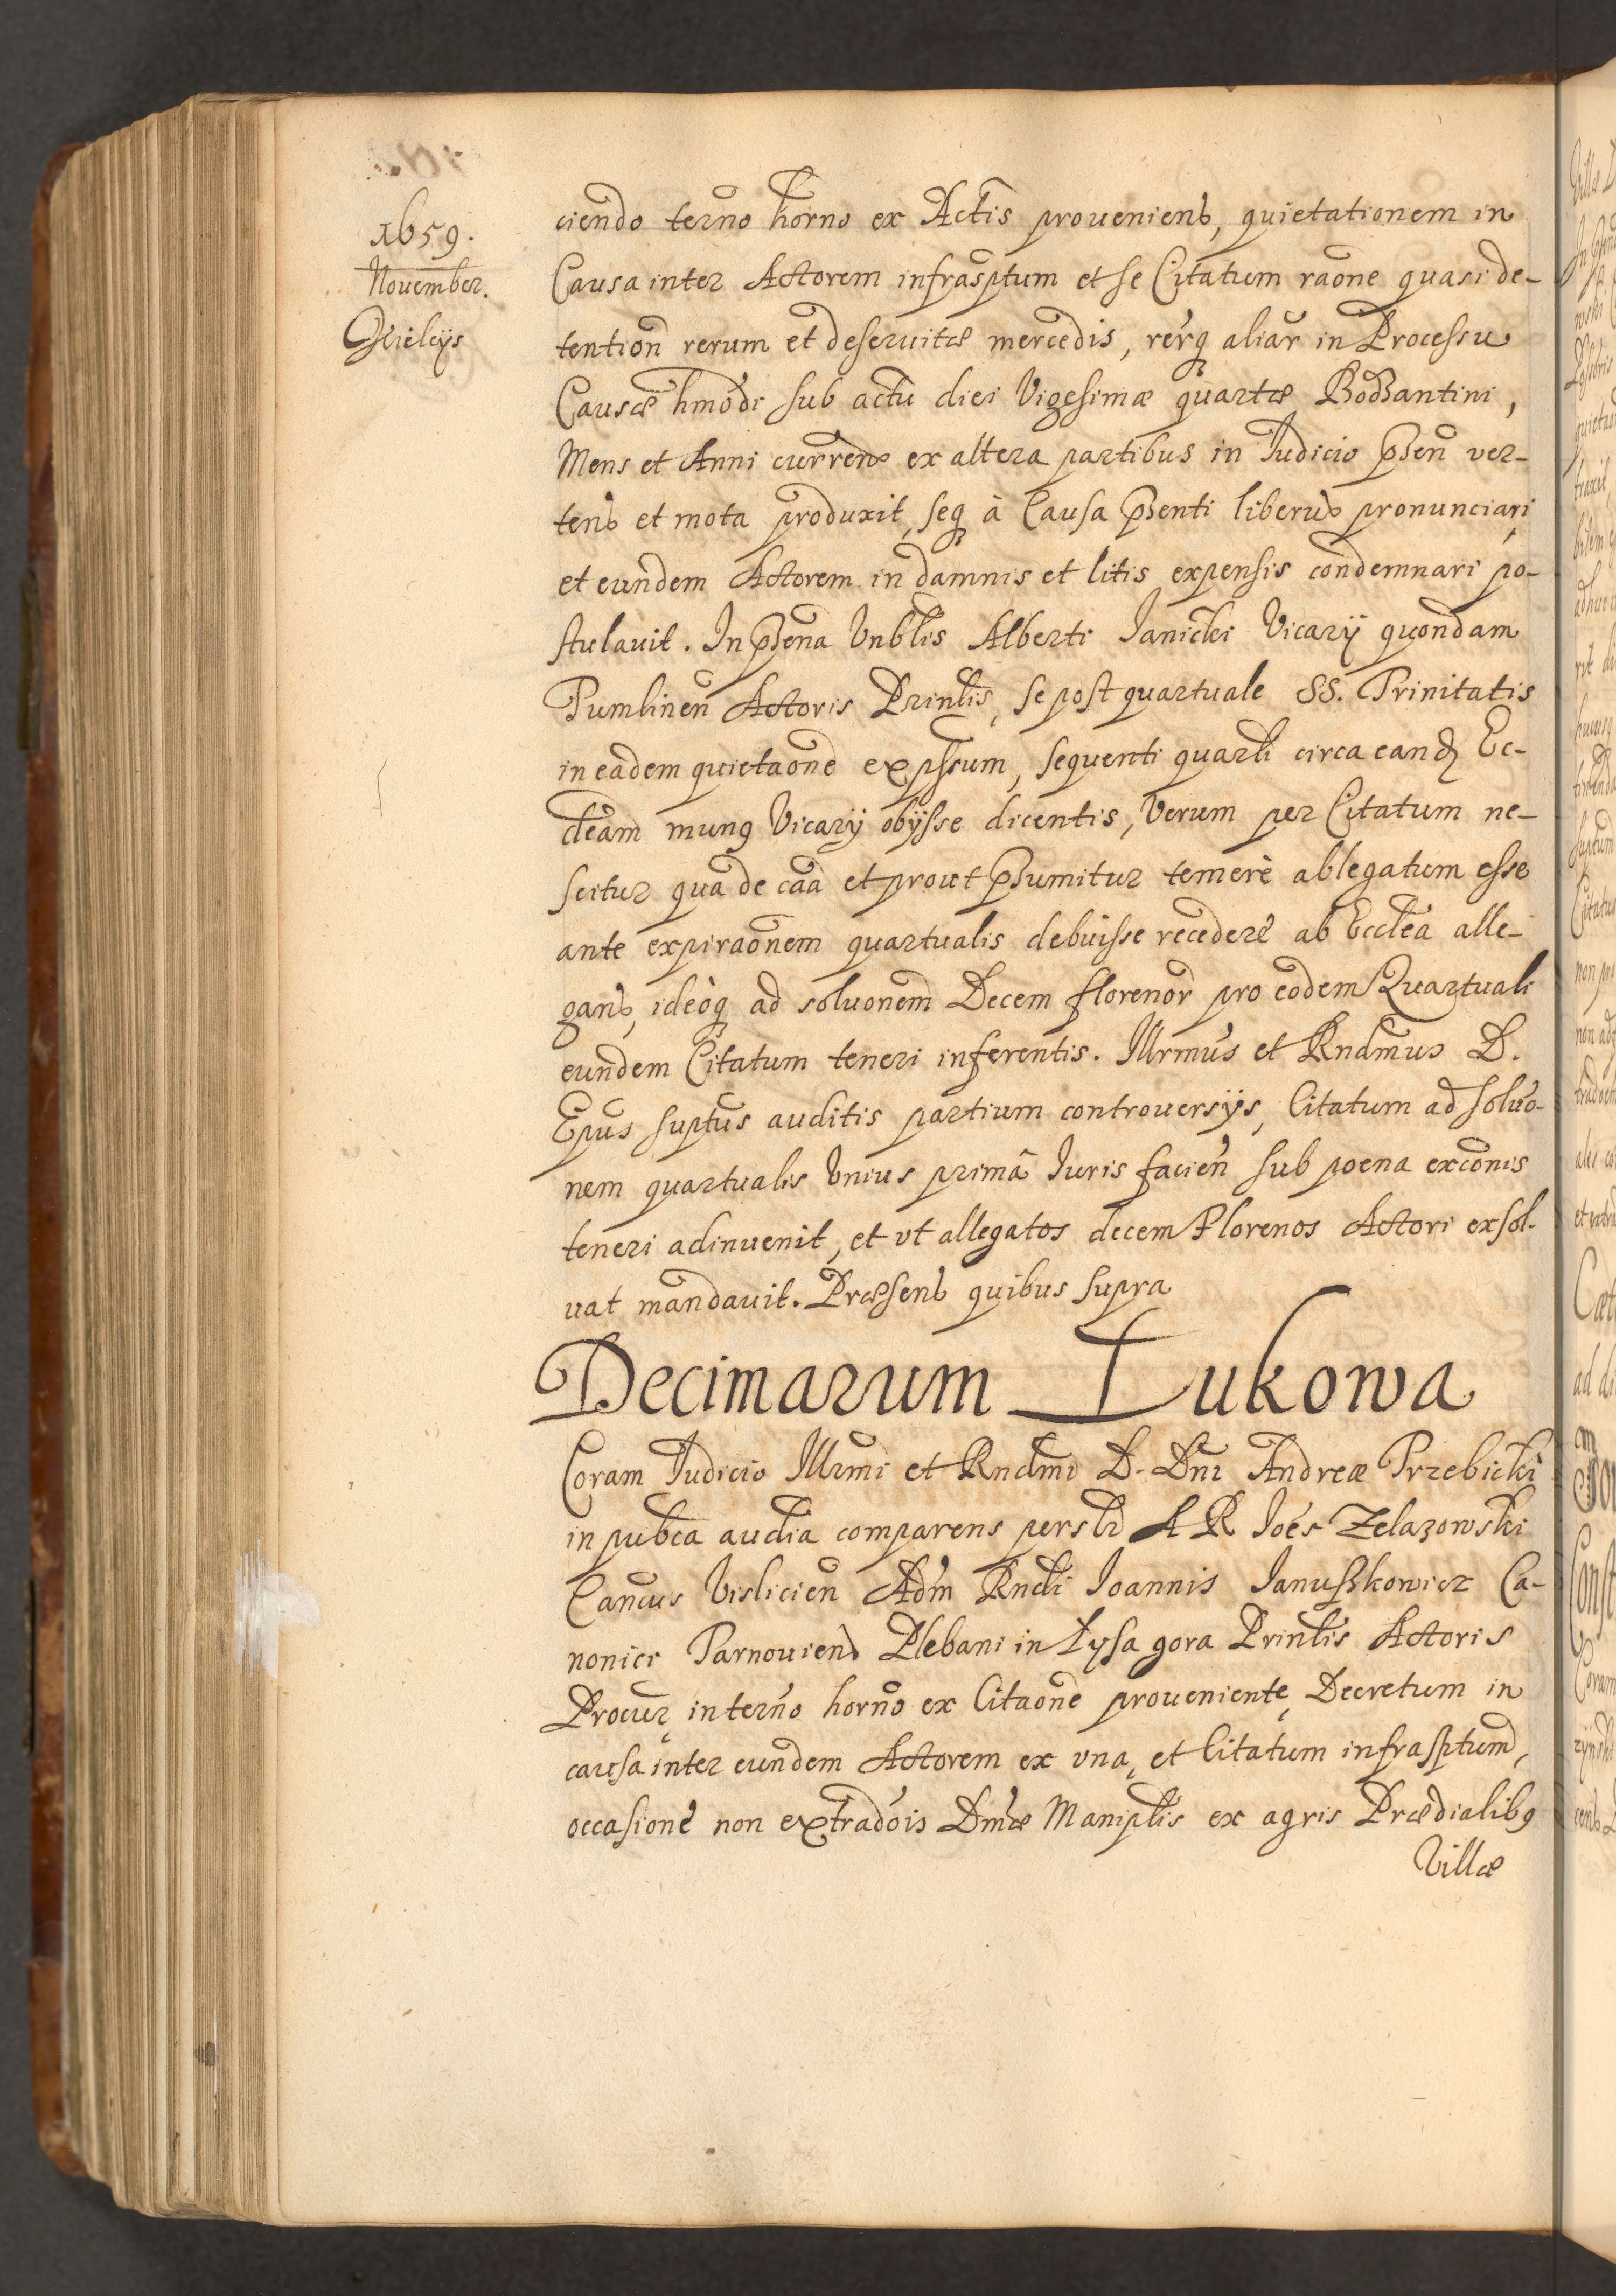 1659.
November.
Kielcijs
ciendo terño horno ex Actis proueniens, quietationem in
Causa inter Actorem infrasptum et se Citatum raõne quasi de-
tention̄ rerum et deseruitæ mercedis, rerq aliar in Processu
Causæ hmõdi sub actu diei Vigesimæ quartæ Bodzantini,
Mens et Anni curren ex altera partibus in Iudicio pñsen̄ ver-
tens et mota produxit, seq à Causa pñsenti liberum pronunciari
et eundem Actorem in damnis et litis expensis condemnari po-
stulauit. In pñsena Vnblis Alberti Ianicki Vicarij quondam
Tumlinen̄ Actoris Prinlis, se post quartuale SS. Trinitatis
in eadem quietaõne expssum, sequenti quarli circa eand Ec-
cleam munq Vicarij obijsse dicentis, Verum per Citatum ne-
scitur qua de caa et prout psumitur temerè ablegatum esse
ante expiraõnem quartualis debuisse recedere ab Ecclea alle-
gans, ideòq ad soluonem Decem florenor pro eodem Quartuali
eundem Citatum teneri inferentis. Illrmus et Rndmus D.
Epus suptus auditis partium controuersijs, Citatum ad soluo-
nem quartualis Vnius primâ Iuris facien̄ sub poena excõnis
teneri adinuenit, et vt allegatos decem Florenos Actori exsol-
uat mandauit. Præsens quibus supra
Decimarum Łukowa
Coram Iudicio Illrmi et Rndmi D. Dni Andreæ Trzebicki
in pubca audia comparens persl̄r A R Ioes Zelazowski
Cancus Vislicien̄ Adm Rndi Ioannis Ianuszkowicz Ca-
nonici Tarnouiens Plebani in Łysa gora Prinlis Actoris
Procur in terño horño ex Citaõne proueniente Decretum in
causa inter eundem Actorem ex vna, et Citatum infrasptum,
occasione non extradõis Dmæ Maniplis ex agris Prædialibq
Villæ